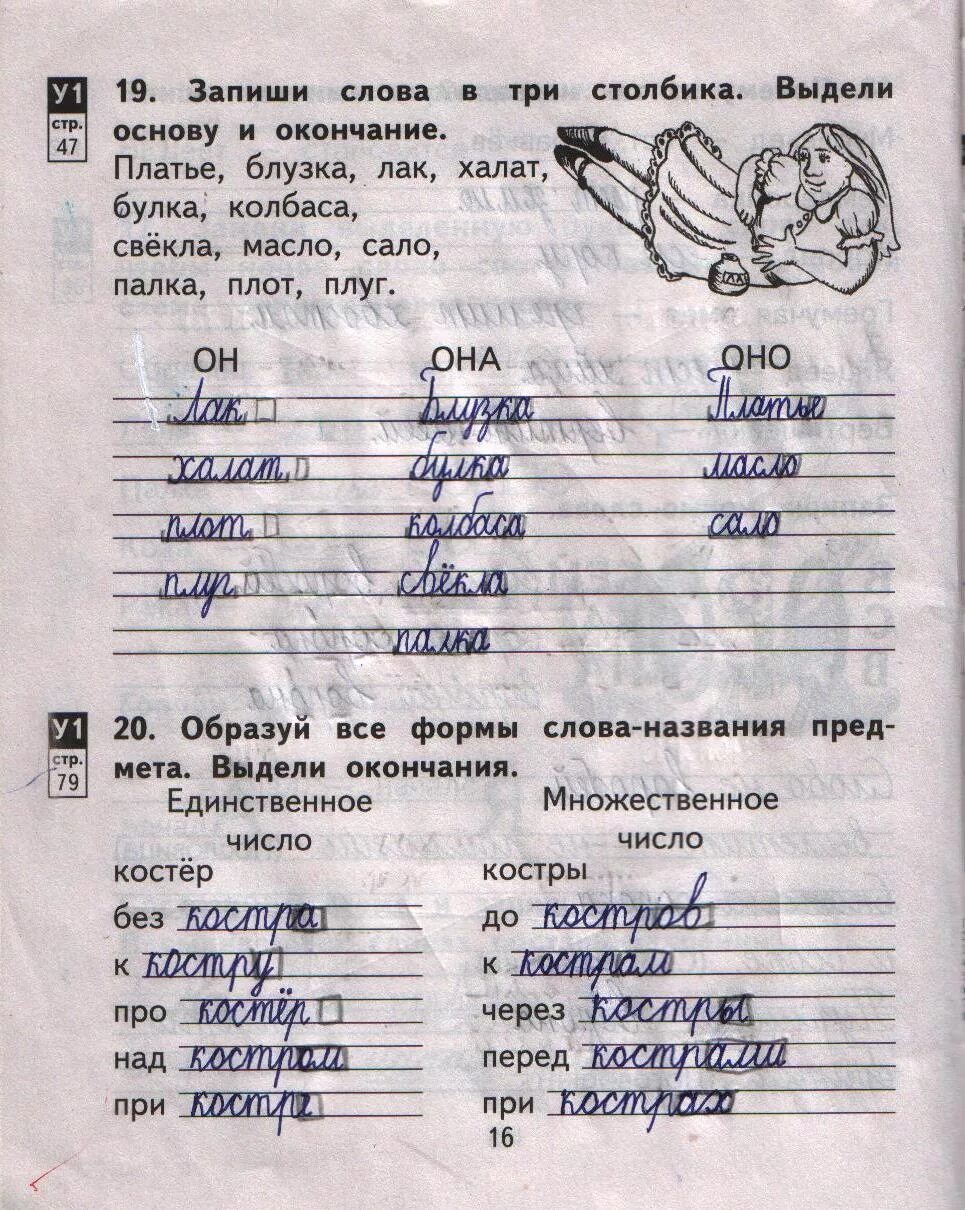 У1
стр.
47
19. Запиши слова в три столбика. Выдели
основу и окончание.
Платье, блузка, лак, халат,
булка, колбаса,
свёкла, масло, сало,
палка, плот, плуг.
ЛАК
ОН ОНА ОНО
Лак Блузка Платье
халат булка масло
плот колбаса сало
плуг свёкла
палка
У1
стр.
79
20. Образуй все формы слова-названия пред-
мета. Выдели окончания.
Единственное Множественное
число число
костёр костры
без костра до костров
к костру к кострам
про костёр через костры
над костром перед кострами
при костре при кострах
16